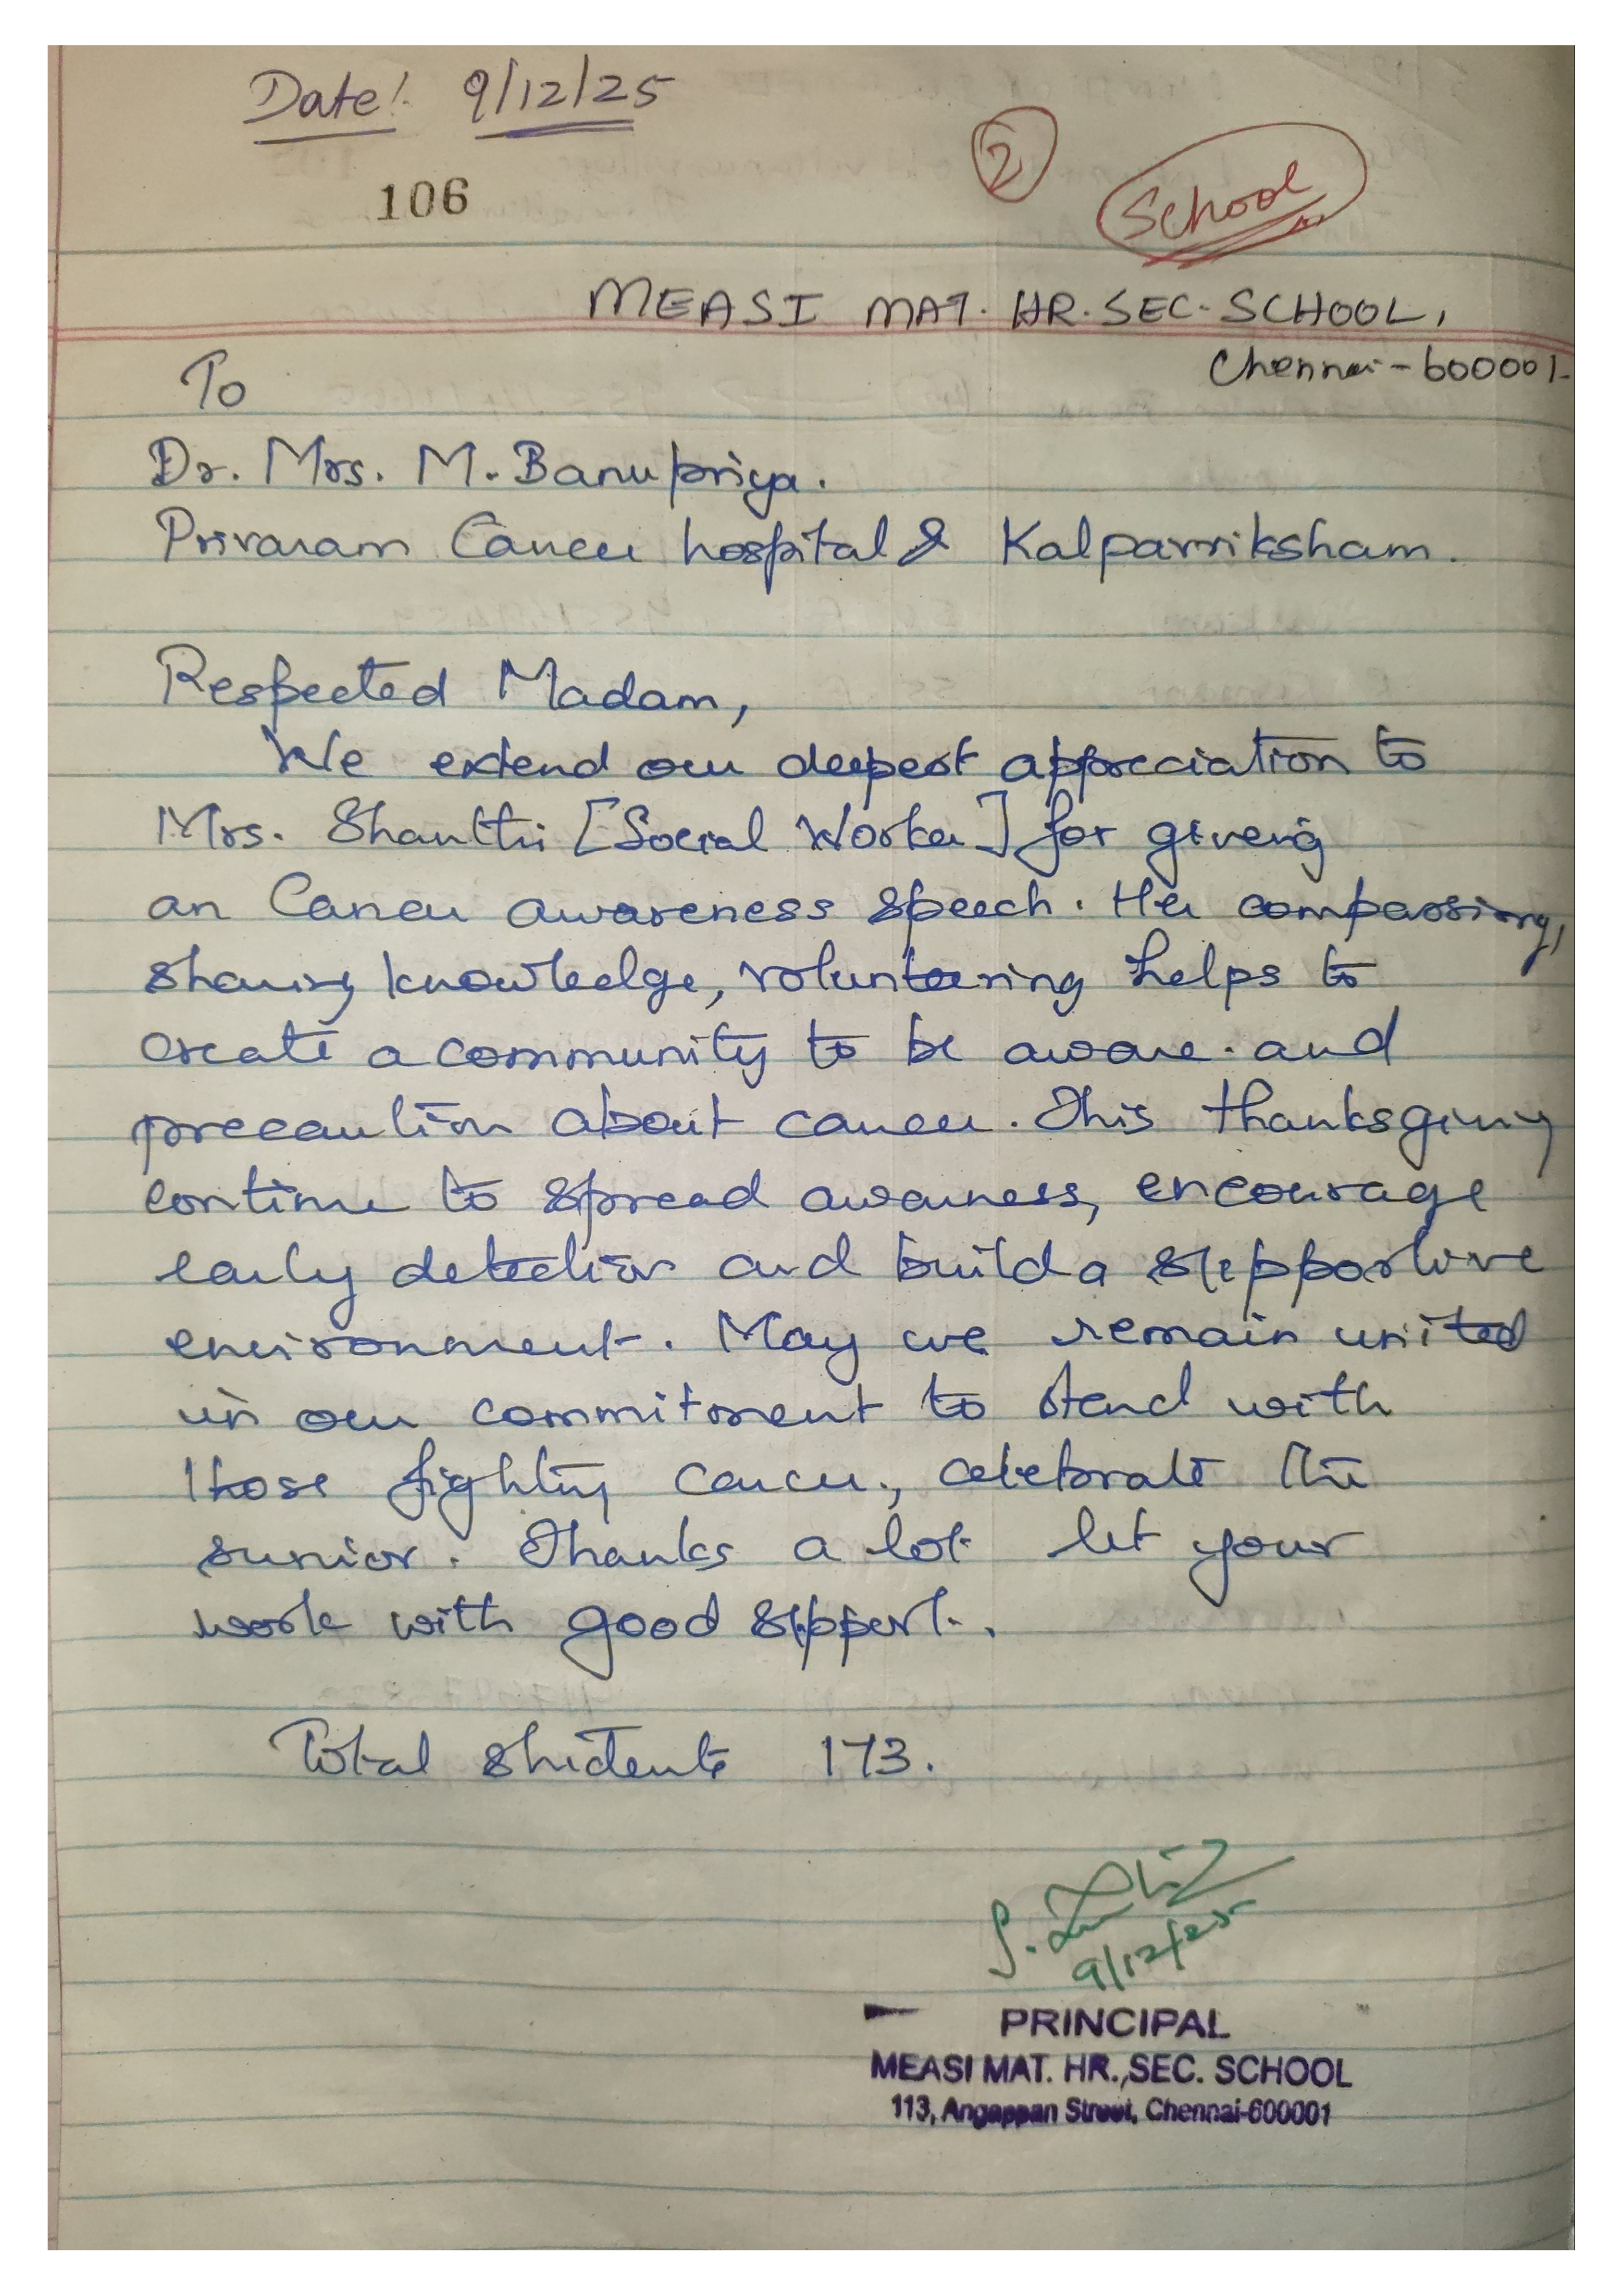 Date: 9/12/25
106
2
School
MEASI MAT. HR. SEC. SCHOOL,
Chennai - 600001.
To
Dr. Mrs. M. Banupriya.
Privaram Cancer hospital & Kalpavriksham.
Respected Madam,
We extend our deepest appreciation to
Mrs. Shanthi [Social Worker] for giving
an Cancer awareness speech. Her compassiong,
sharing knowledge, volunteering helps to
create a community to be aware. and
precaution about cancer. This thanksgiving
continue to spread awarness, encourage
early detection and build a supportive
environment. May we remain united
in our commitment to stand with
those fighting cancer, celebrate the
sunior. Thanks a lot let your
work with good support.
Total students 173.
9/12/25
PRINCIPAL
MEASI MAT. HR., SEC. SCHOOL
113, Angappan Street, Chennai-600001